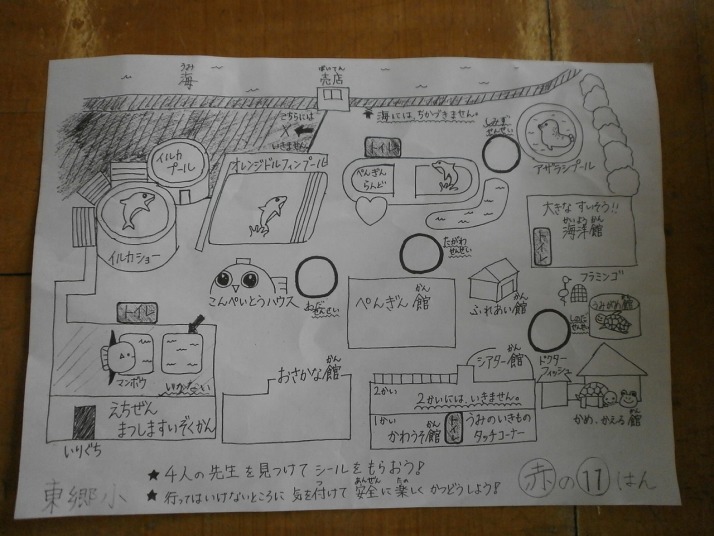 うみ
海
ばいてん
売店
こちらには
いきません。
★海には、ちかづきません。
しみず
せんせい
トイレ
イルカ
プール
オレンジドルフィンプール
ぺんぎん
らんど
アザラシプール
大きな すいそう!!
かいよう かん
海洋館
トイレ
イルカショー
たがわ
せんせい
こんぺいとうハウス
おだ
せんせい
かん
ぺんぎん館
かん
ふれあい館
フラミンゴ
かん
うみがめ館
しのだ
せんせい
トイレ
マンボウ
かん
おさかな館
かん
シアター館
ドクター
フィッシュ
えちぜん
まつしますいぞくかん
いりぐち
2かい
2かいには、いきません。
1かい
かん
かわうそ館
トイレ
うみのいきもの
タッチコーナー
かん
かめ、かえる館
★4人の先生を見つけてシールをもらおう!
つ
あんぜん
たの
★行ってはいけないところに気を付けて安全に楽しくかつどうしよう!
東郷小
赤の11はん